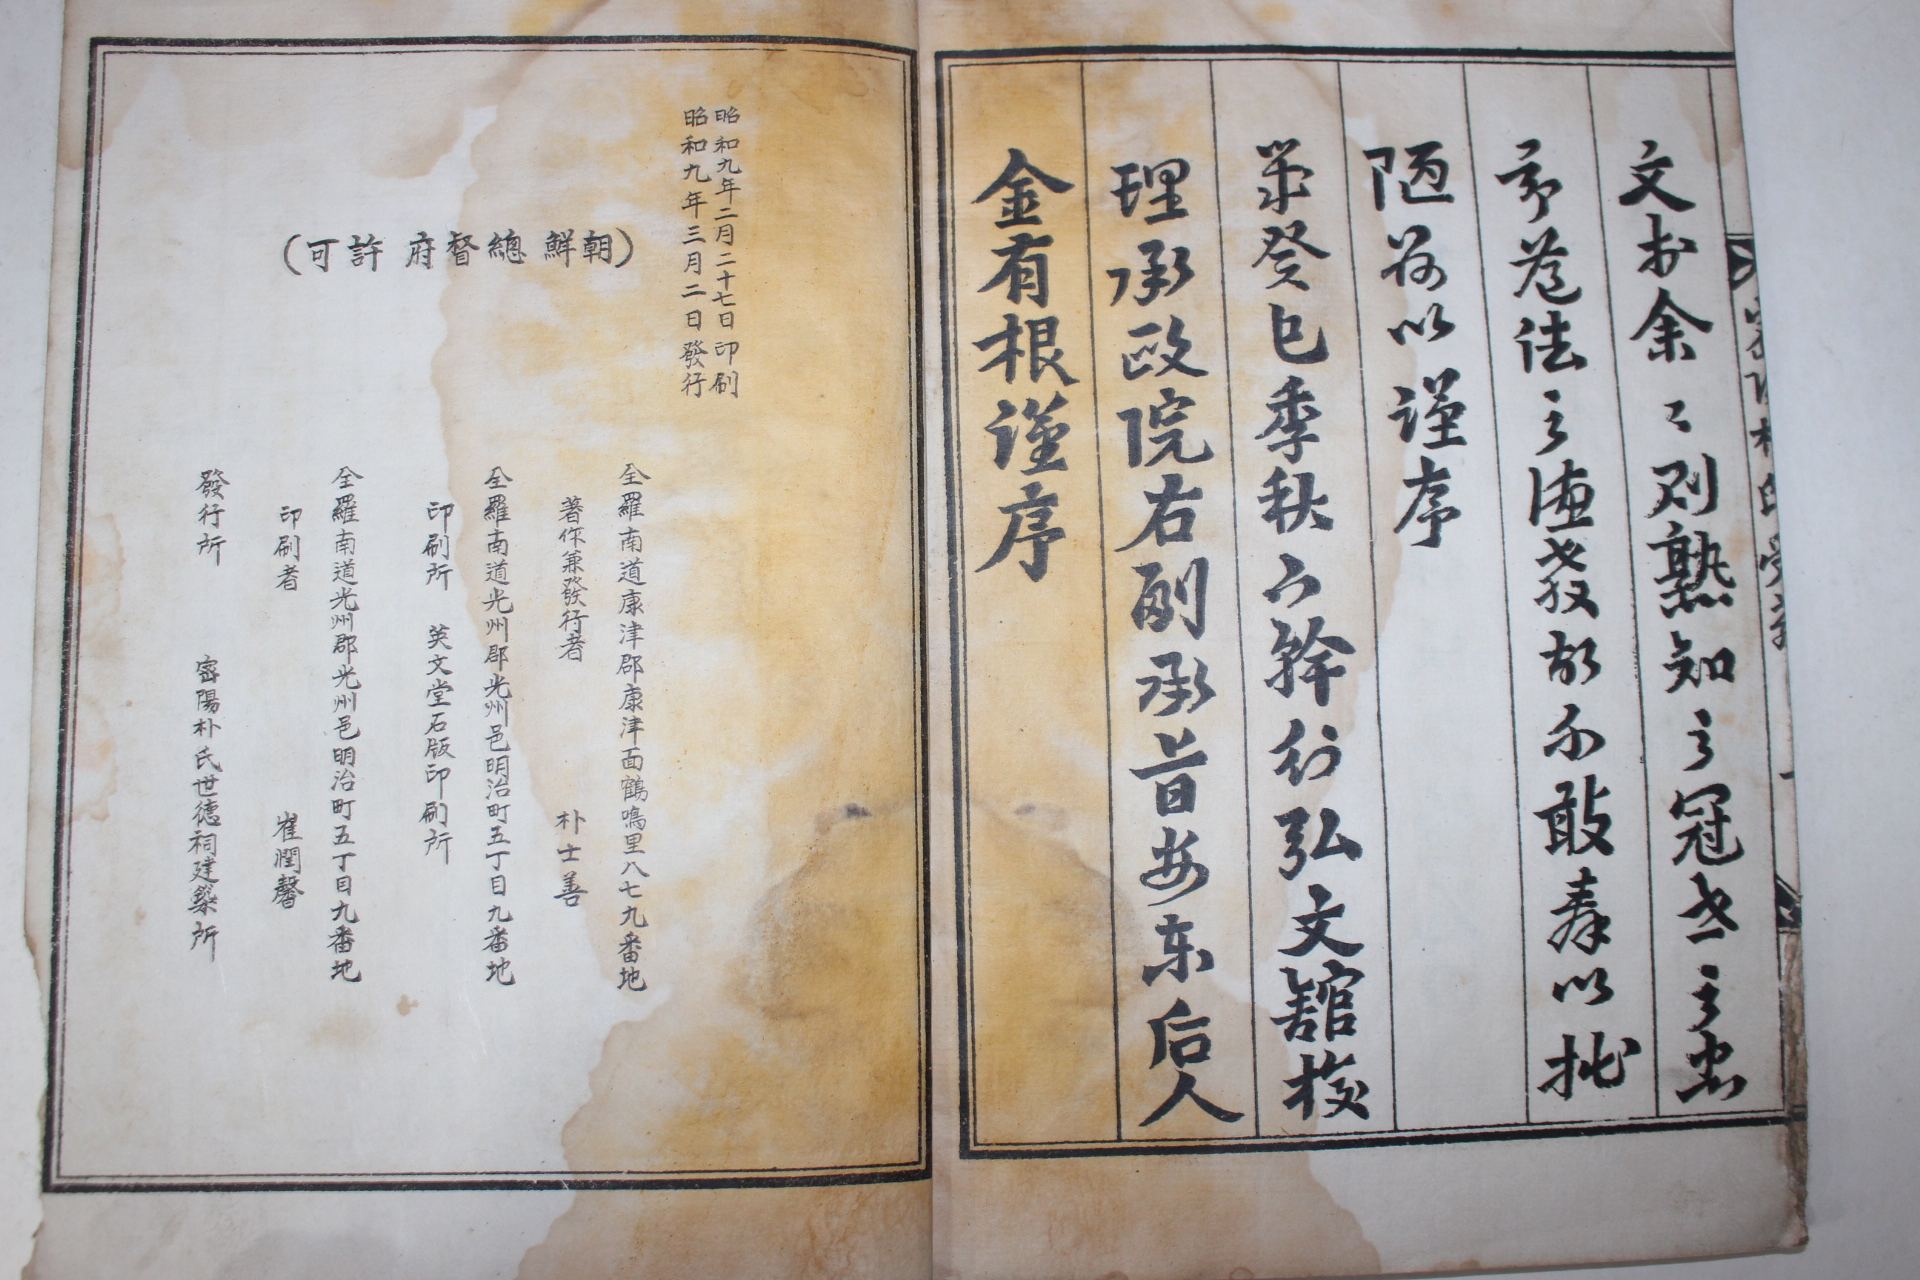 文於余余則熟知之冠世之忠
之德教故不敢奉以拙
陋荷以謹序
癸巳季秋 幹行弘文館校
理承政院右副承旨安東后人
金有根謹序
昭和九年二月二十七日印刷
昭和九年三月二日發行
(朝鮮總督府許可)
全羅南道康津郡康津面鶴鳴里八七九番地
著作兼發行者 朴士善
全羅南道光州郡光州邑明治町五丁目九番地
印刷所 英文堂石版印刷所
全羅南道光州郡光州邑明治町五丁目九番地
印刷者 崔潤馨
發行所 密陽朴氏世德祠建築所